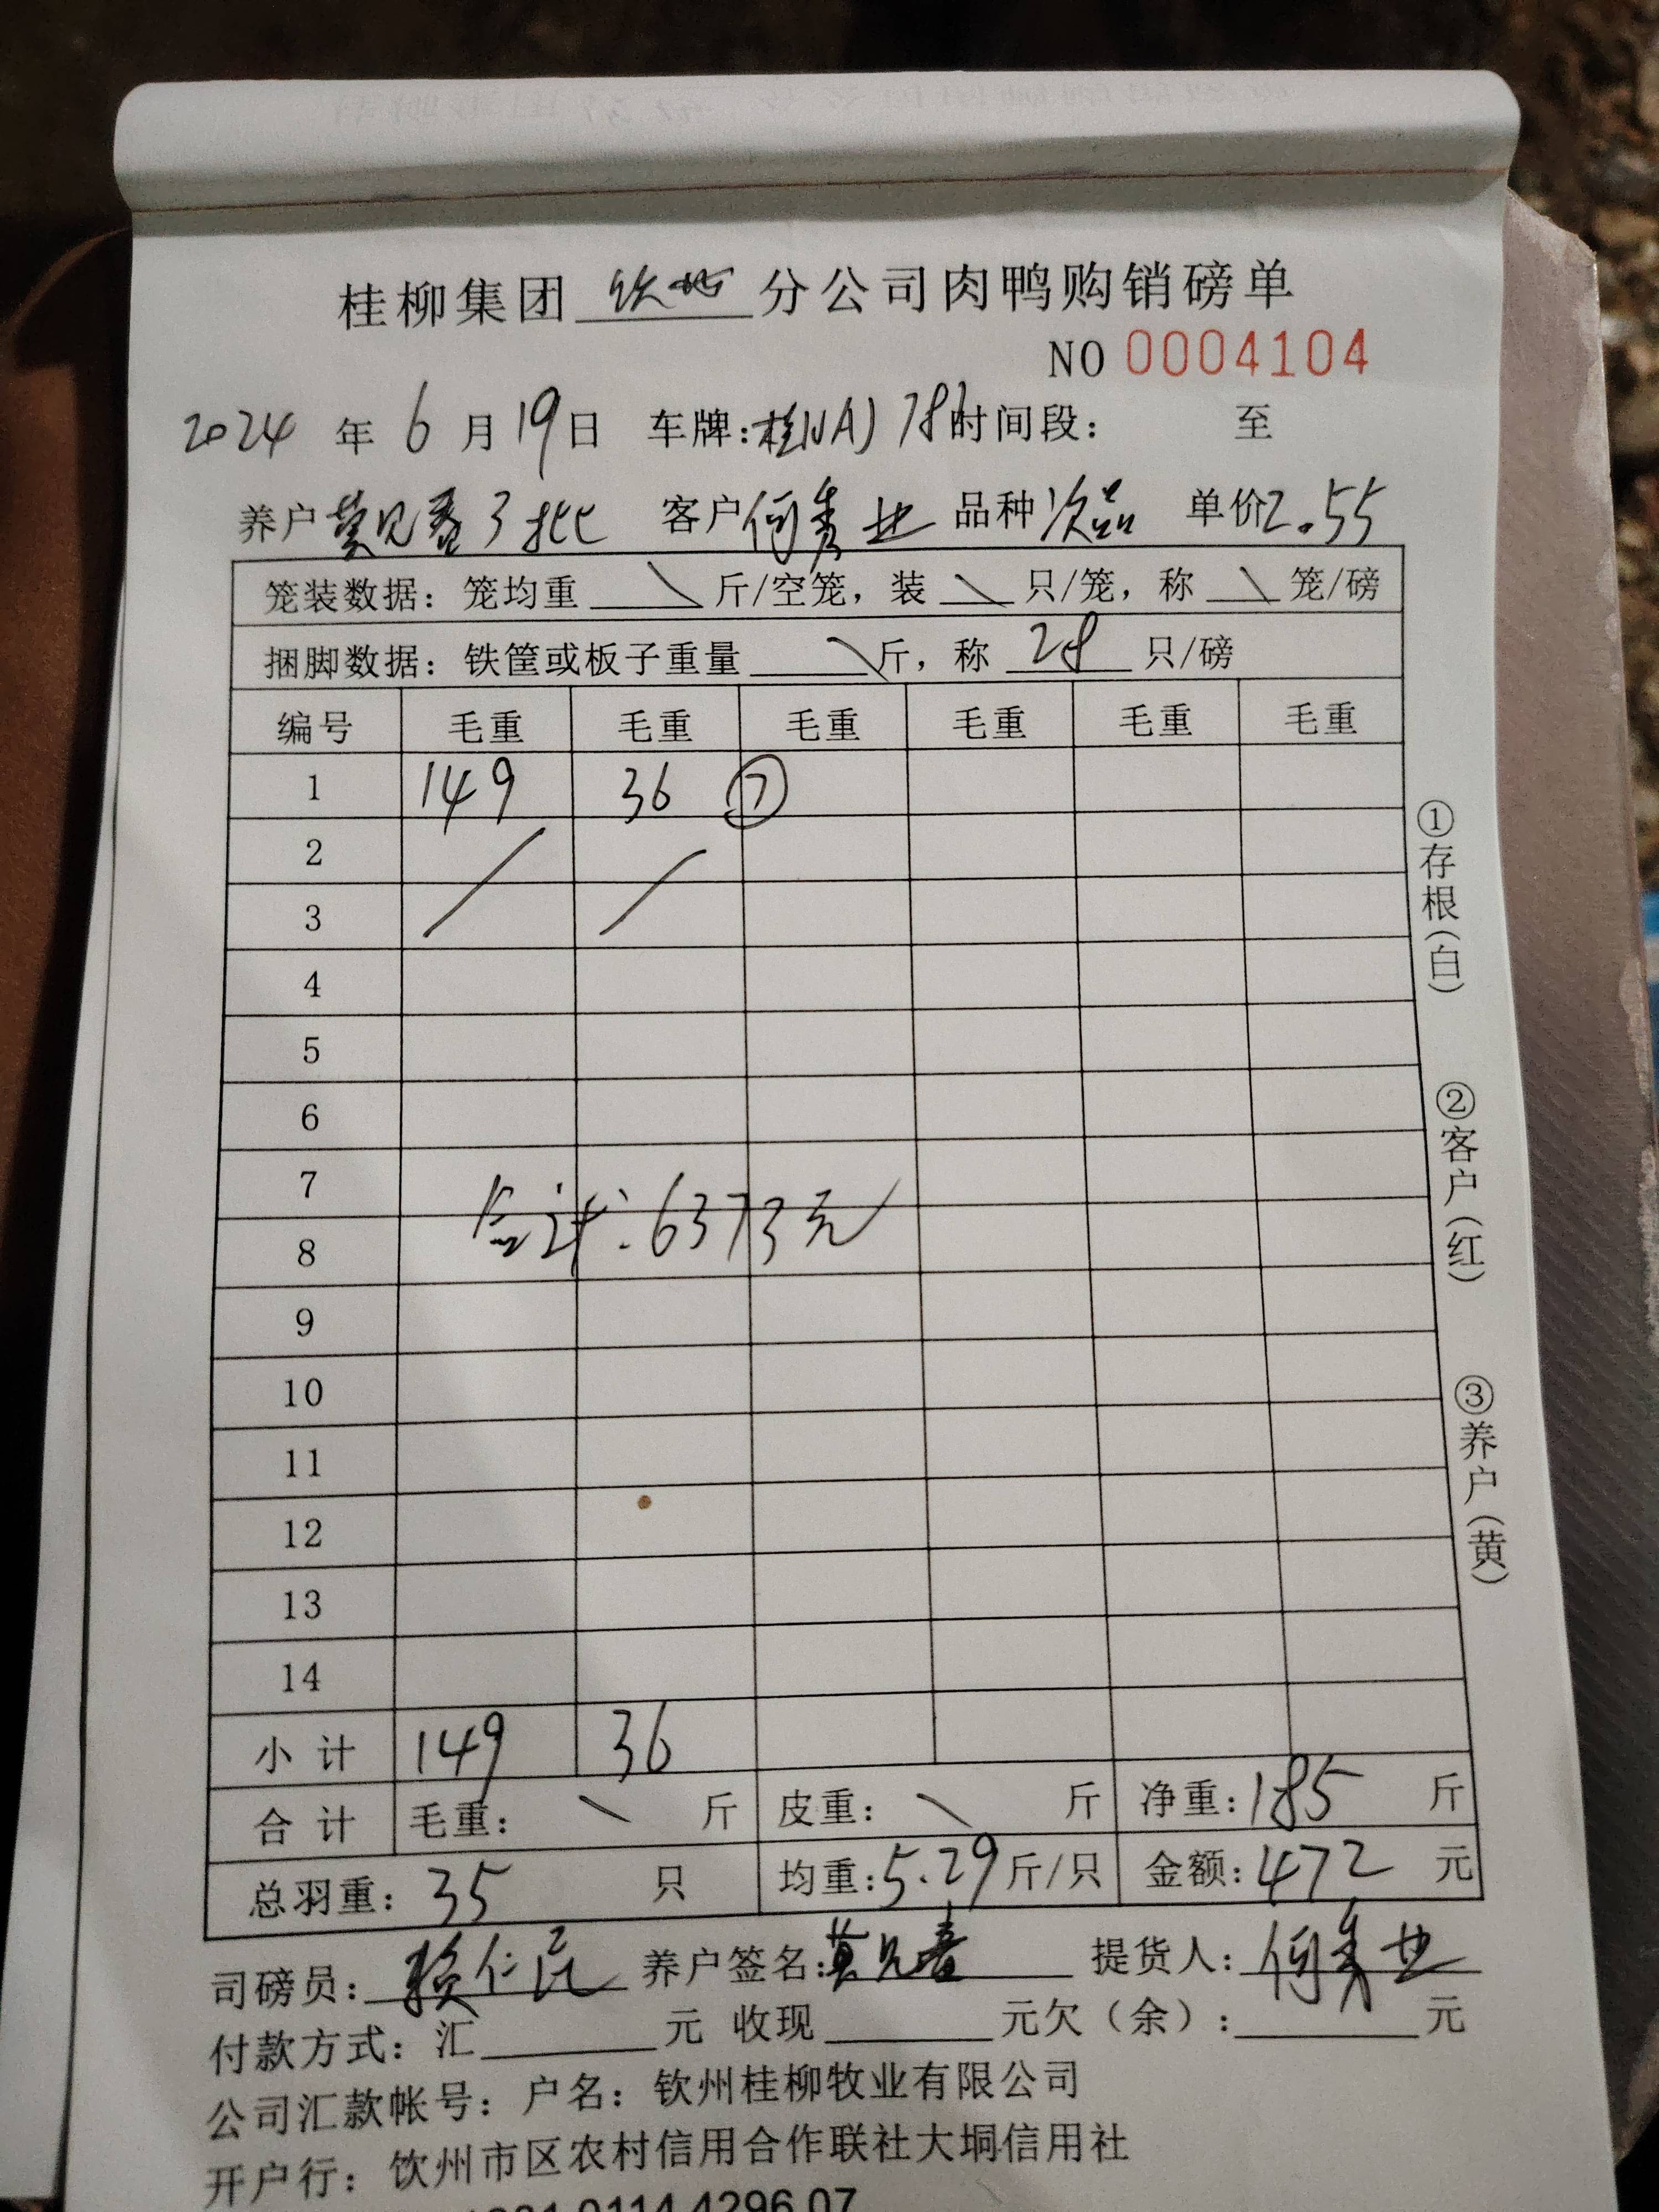 桂柳集团 钦州 分公司肉鸭购销磅单
NO 0004104
2024 年 6 月 19 日 车牌: 时间段: 至
养户 莫见春 3批 客户 何秀业 品种 次品 单价 2.55
笼装数据: 笼均重 \ 斤/空笼, 装 \ 只/笼, 称 \ 笼/磅
捆脚数据: 铁筐或板子重量 \ 斤, 称 28 只/磅
编号 毛重 毛重 毛重 毛重 毛重 毛重
1 149 36 ⑦
2
3
4
5
6
7
合计: 6373元
8
9
10
11
12
13
14
小计 149 36
合计 毛重: \ 斤 皮重: \ 斤 净重: 185 斤
总羽重: 35 只 均重: 5.29 斤/只 金额: 472 元
司磅员: 赖仁民 养户签名: 莫见春 提货人: 何秀业
付款方式: 汇 元 收现 元欠(余): 元
公司汇款帐号: 户名: 钦州桂柳牧业有限公司
开户行: 钦州市区农村信用合作联社大垌信用社
0114 4296 07
①存根(白)
②客户(红)
③养户(黄)